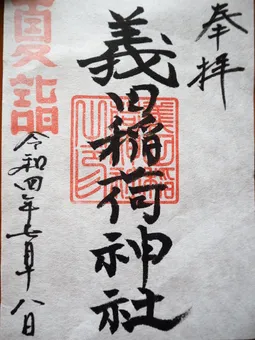 奉拝
義田稲荷神社
夏詣
令和四年七月八日